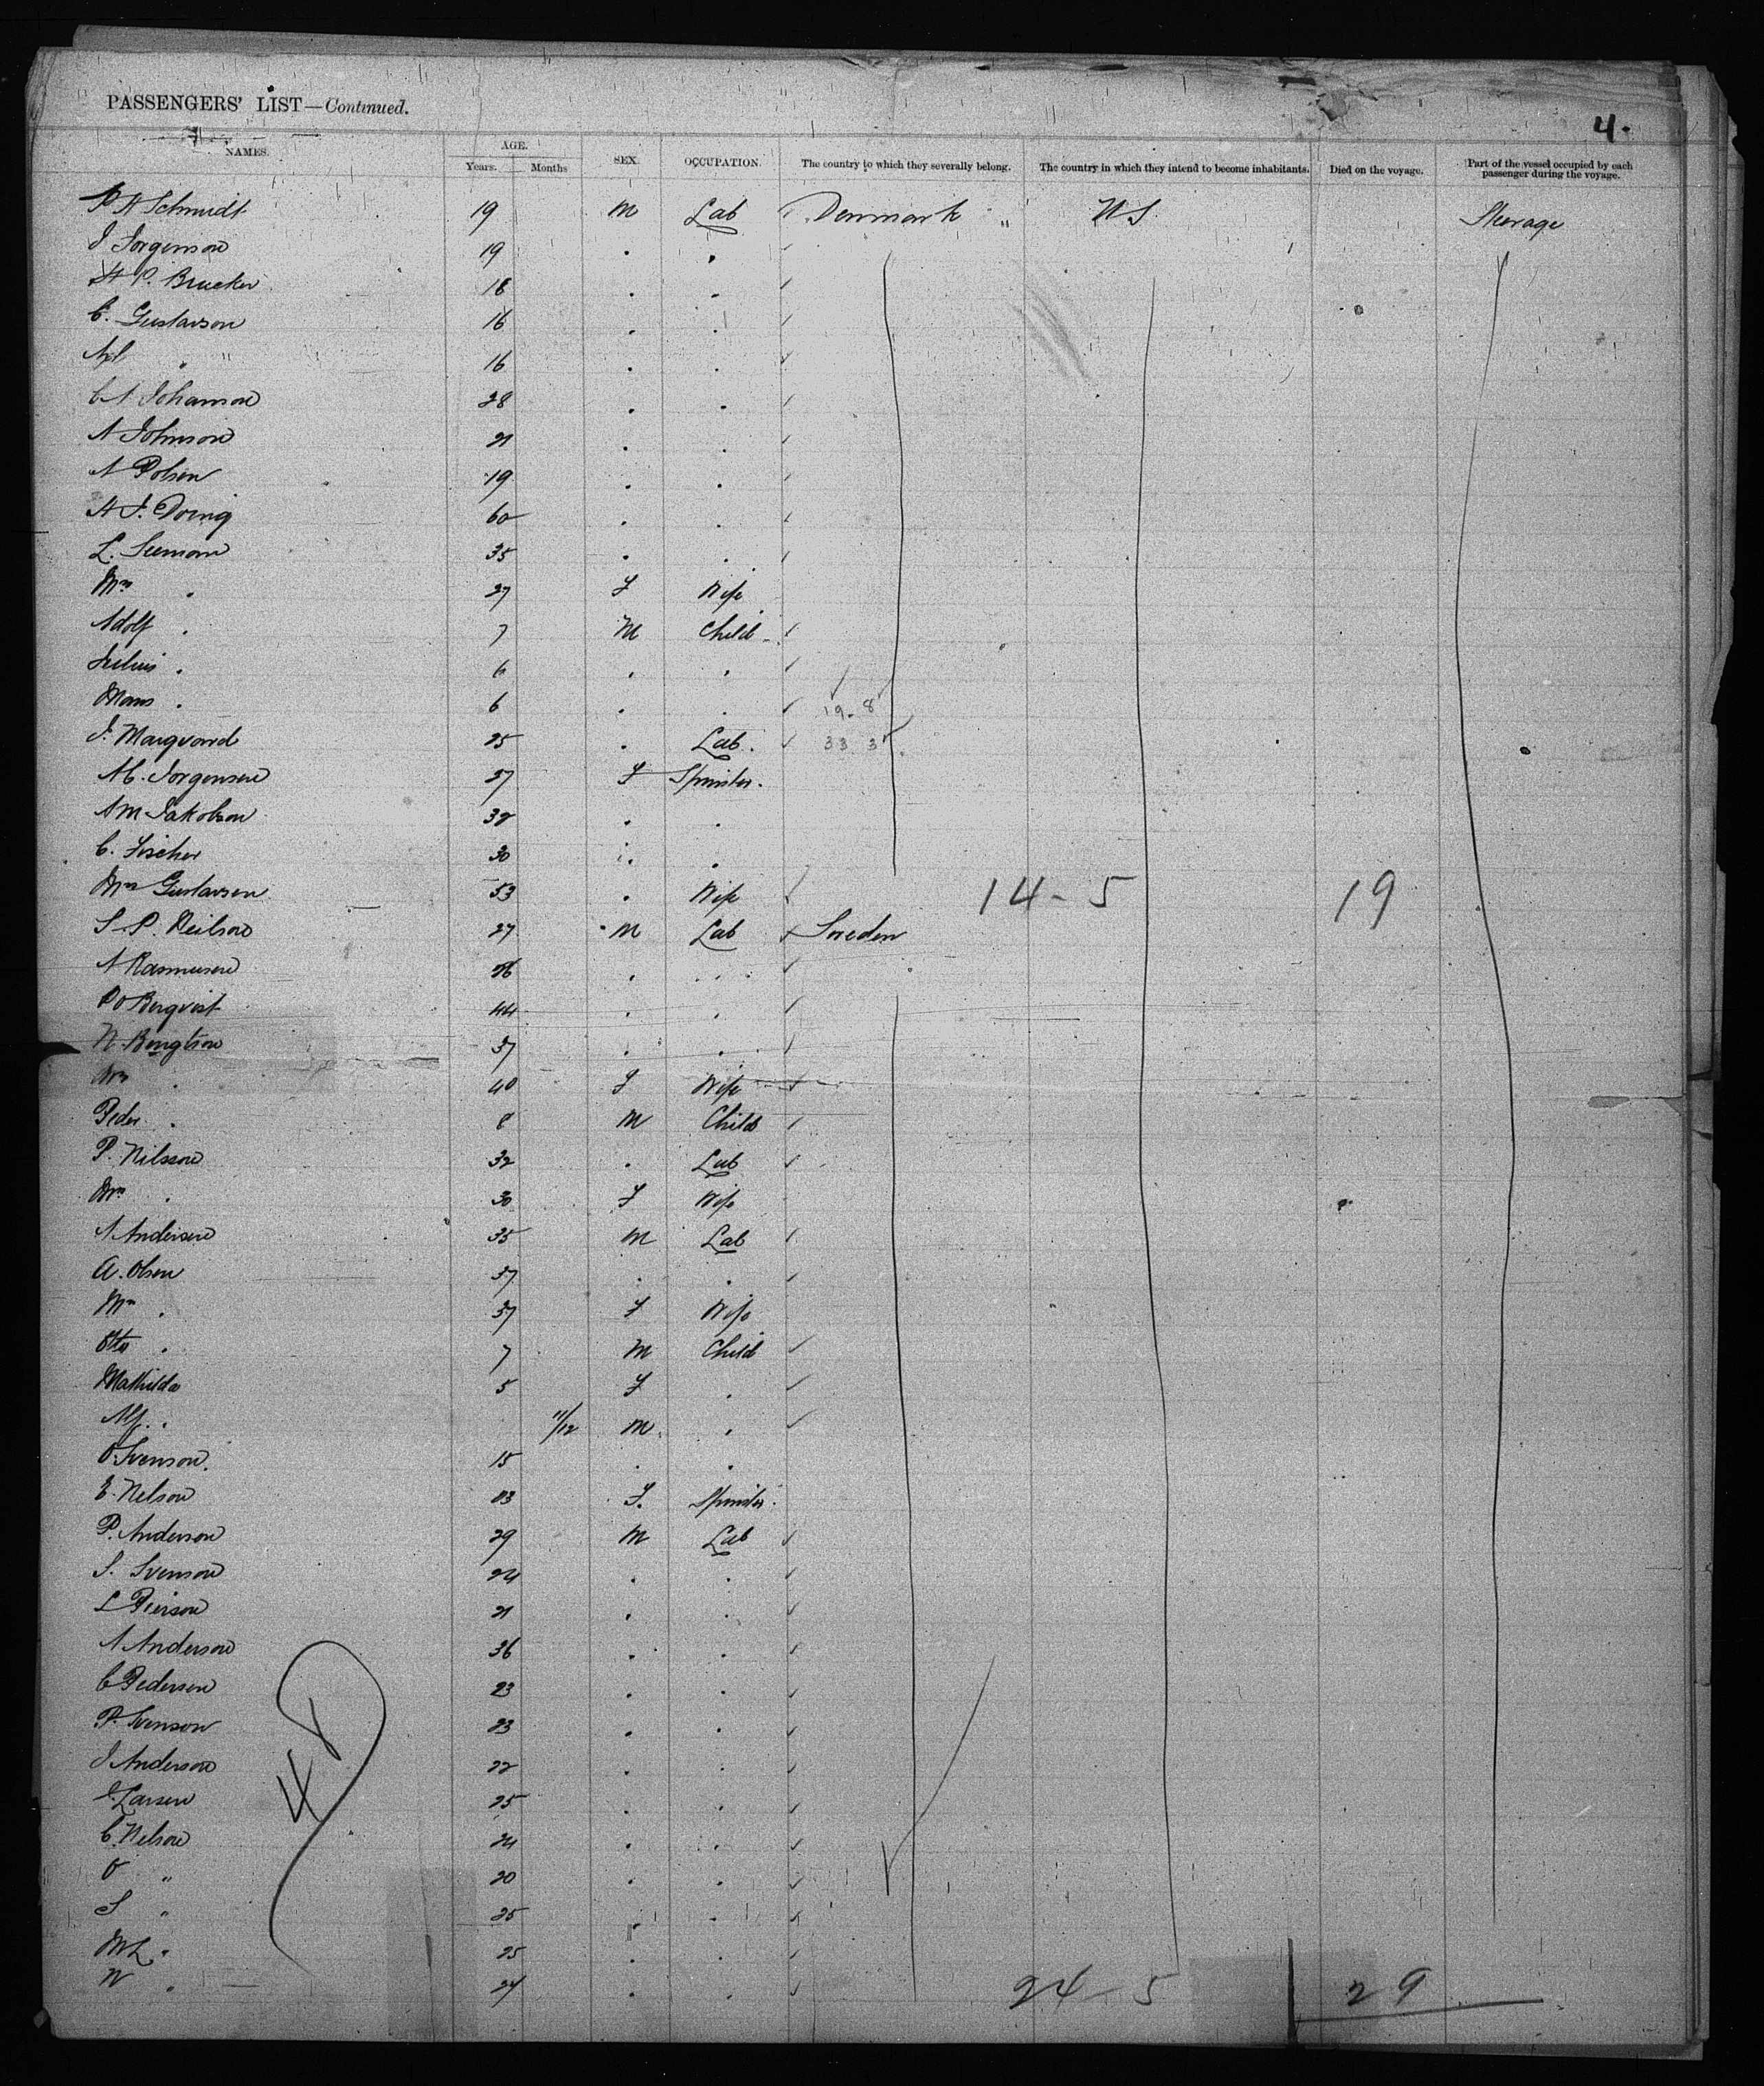 PASSENGERS' LIST—Continued.
4.
NAMES. AGE. Years. Months SEX. OCCUPATION. The country to which they severally belong. The country in which they intend to become inhabitants. Died on the voyage. Part of the vessel occupied by each passenger during the voyage.
Schmidt 19 M Lab Denmark " U S. Steerage
J Jorgenson 19 . .
H P. Brucker 18 . .
C. Gustavson 16 . .
Axl " 16 . .
C A Johanson 28 . .
A Johnson 21 . .
A Polsen 19 . .
H J. Doring 60 . .
L. 35 . .
Mrs . 27 F Wife
Adolf . 7 M Child
Julius . 6 . .
Mans . 6 . . 19-8
J. Marqvard 25 . Lab. 33 3
M C. Jorgensen 27 F Spinster.
A M Jakobson 32 . .
C. Fischer 30 . .
Mrs Gustavsen 53 . Wife 14-5 19
S P. Neilson 27 M Lab Sweden
A Rasmusen 26 . .
P O Berqvist 44 . .
N. Bengtson 37 . .
Mrs . 40 F Wife
Peder . 8 M Child
P. Nilsson 32 . Lab
Mrs . 30 F Wife
A Andersen 35 M Lab
A. Olsen 37 . .
Mrs . 37 F Wife
Otto . 7 M Child
Mathilda 5 F .
Alf. . 11/12 M .
O. Svenson. 15 . .
E. Nelson 23 F. Spinster.
P. Anderson 29 M Lab
S. Svenson 24 . .
L Pierson 21 . .
A Anderson 36 . .
C Pedersen 23 . .
P. Svenson 23 . .
J Anderson 22 . .
J. Larsen 25 . .
C. Nelson 24 . .
O " 20 . .
S " 25 . .
M L . 25 . .
N . 27 . . 24 5 29
48